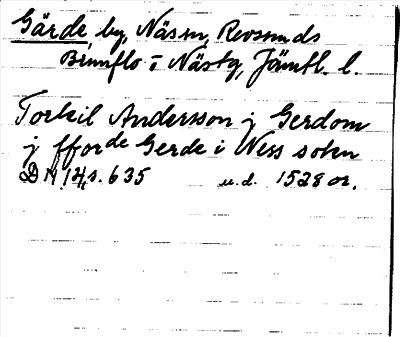 Gärde by, Näsm, Revsunds
Brunflo - Nästg, Jämtl. l.
Torkil Andersson j Gerdom
j fforde Gerde i Ness sokn
DN 14, s. 635 u.d. 1528 or.